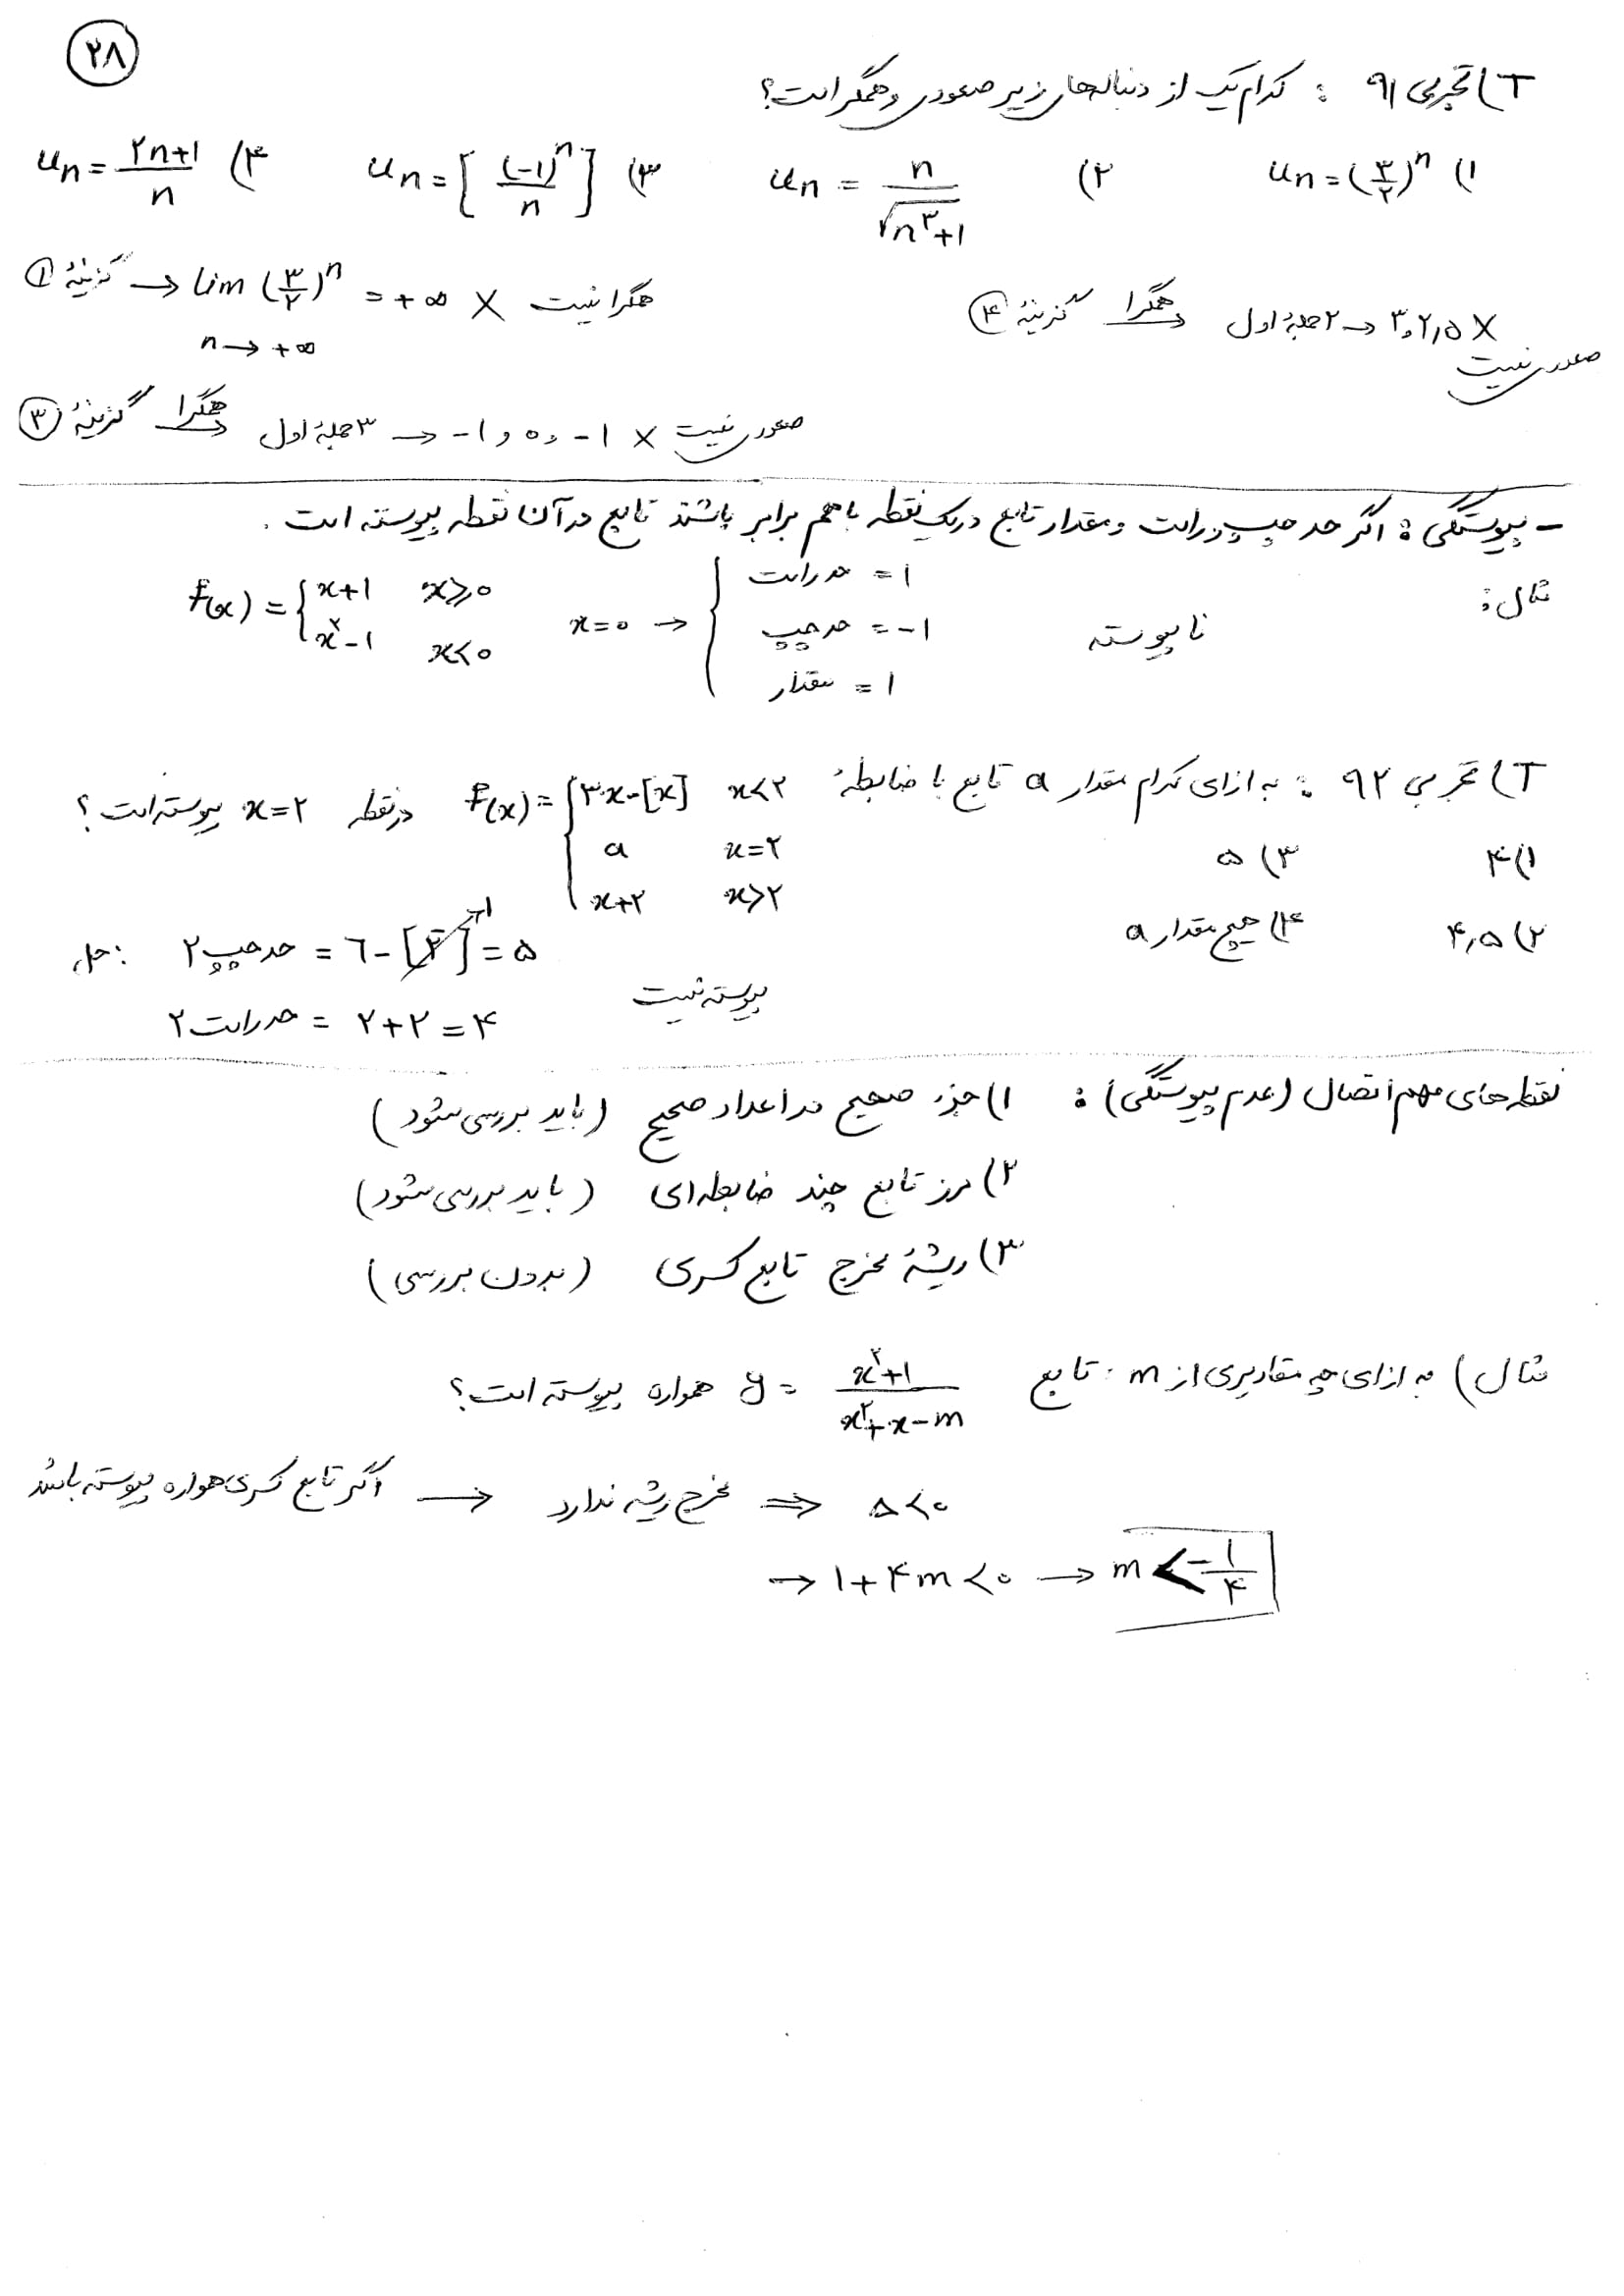 ۲۸
T) تجربی ۹۱ : کدام یک از دنباله‌های زیر صعودی و همگراست؟
۱) un = (۳/۲)^n ۲) un = n/√(n^۳+۱) ۳) un = [(-۱)^n/n] ۴) un = (۲n+۱)/n
گزینهٔ ① → lim (۳/۲)^n = +∞ × همگرا نیست
n → +∞
گزینهٔ ④ همگرا → ۲ جملهٔ اول → ۳, ۲٫۵ × صعودی نیست
گزینهٔ ③ همگرا → ۳ جملهٔ اول → -۱, ۰, -۱ × صعودی نیست
- پیوستگی : اگر حد چپ و راست و مقدار تابع در یک نقطه با هم برابر باشند تابع در آن نقطه پیوسته است .
مثال :
f(x) = { x+۱ x≥۰
x^۲-۱ x<۰
x=۰ → { حد راست = ۱
حد چپ = -۱
مقدار = ۱
ناپیوسته
T) تجربی ۹۲ : به ازای کدام مقدار a تابع با ضابطهٔ f(x) = { ۳x-[x] x<۲
a x=۲
x+۲ x>۲
در نقطه x=۲ پیوسته است ؟
۱) ۴ ۳) ۵
۲) ۴٫۵ ۴) هیچ مقدار a
حل : حد چپ ۲ = ۶-[۲]^۱ = ۵
حد راست ۲ = ۲+۲ = ۴
پیوسته نیست
نقطه‌های مهم اتصال (عدم پیوستگی) : ۱) جزء صحیح در اعداد صحیح (باید بررسی شود)
۲) مرز تابع چند ضابطه‌ای (باید بررسی شود)
۳) ریشهٔ مخرج تابع کسری (بدون بررسی)
مثال) به ازای چه مقادیری از m تابع y = (x^۲+۱)/(x^۲+x-m) همواره پیوسته است ؟
اگر تابع کسری همواره پیوسته باشد → مخرج ریشه ندارد ⇒ Δ<۰
→ ۱+۴m<۰ → m < -۱/۴